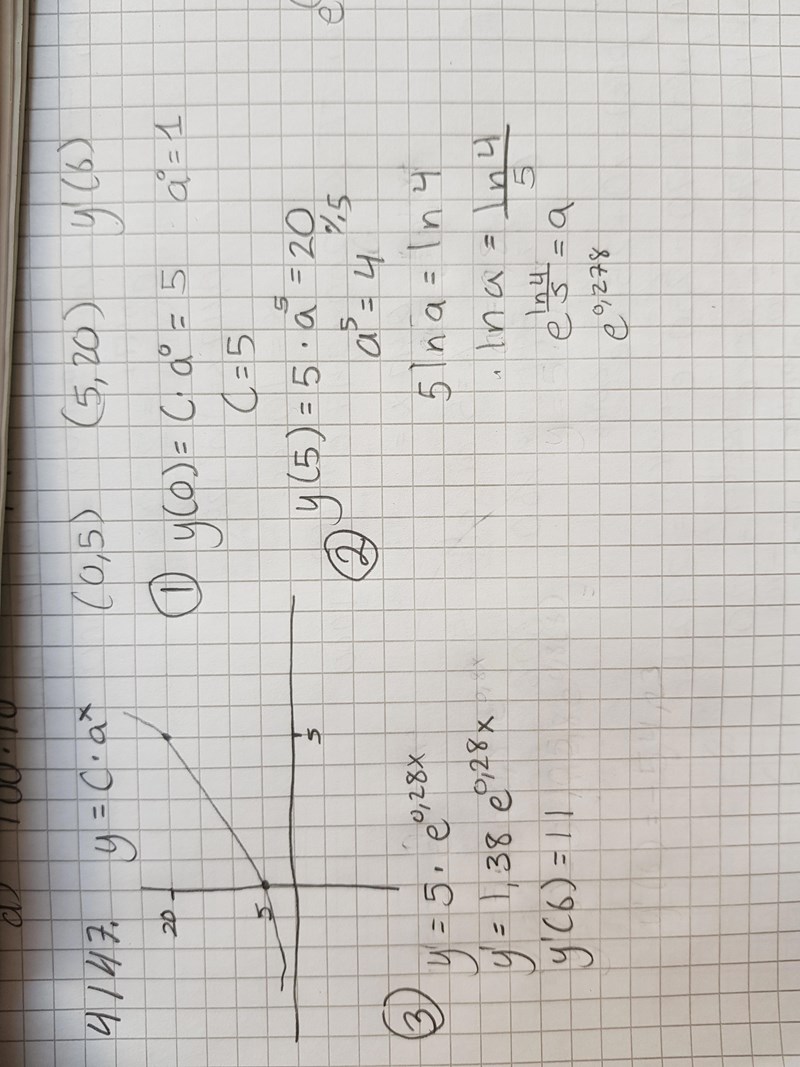 4147. y = C · aˣ (0,5) (5,20) y'(6)
20
5
5
① y(0) = C · a⁰ = 5 a⁰ = 1
C = 5
② y(5) = 5 · a⁵ = 20
a⁵ = 4 %5
5 ln a = ln 4
ln a = ln 4 / 5
e^(ln4/5) = a
e^0,278
③ y' = 5 · e^0,28x
y' = 1,38 e^0,28x
y'(6) = 11